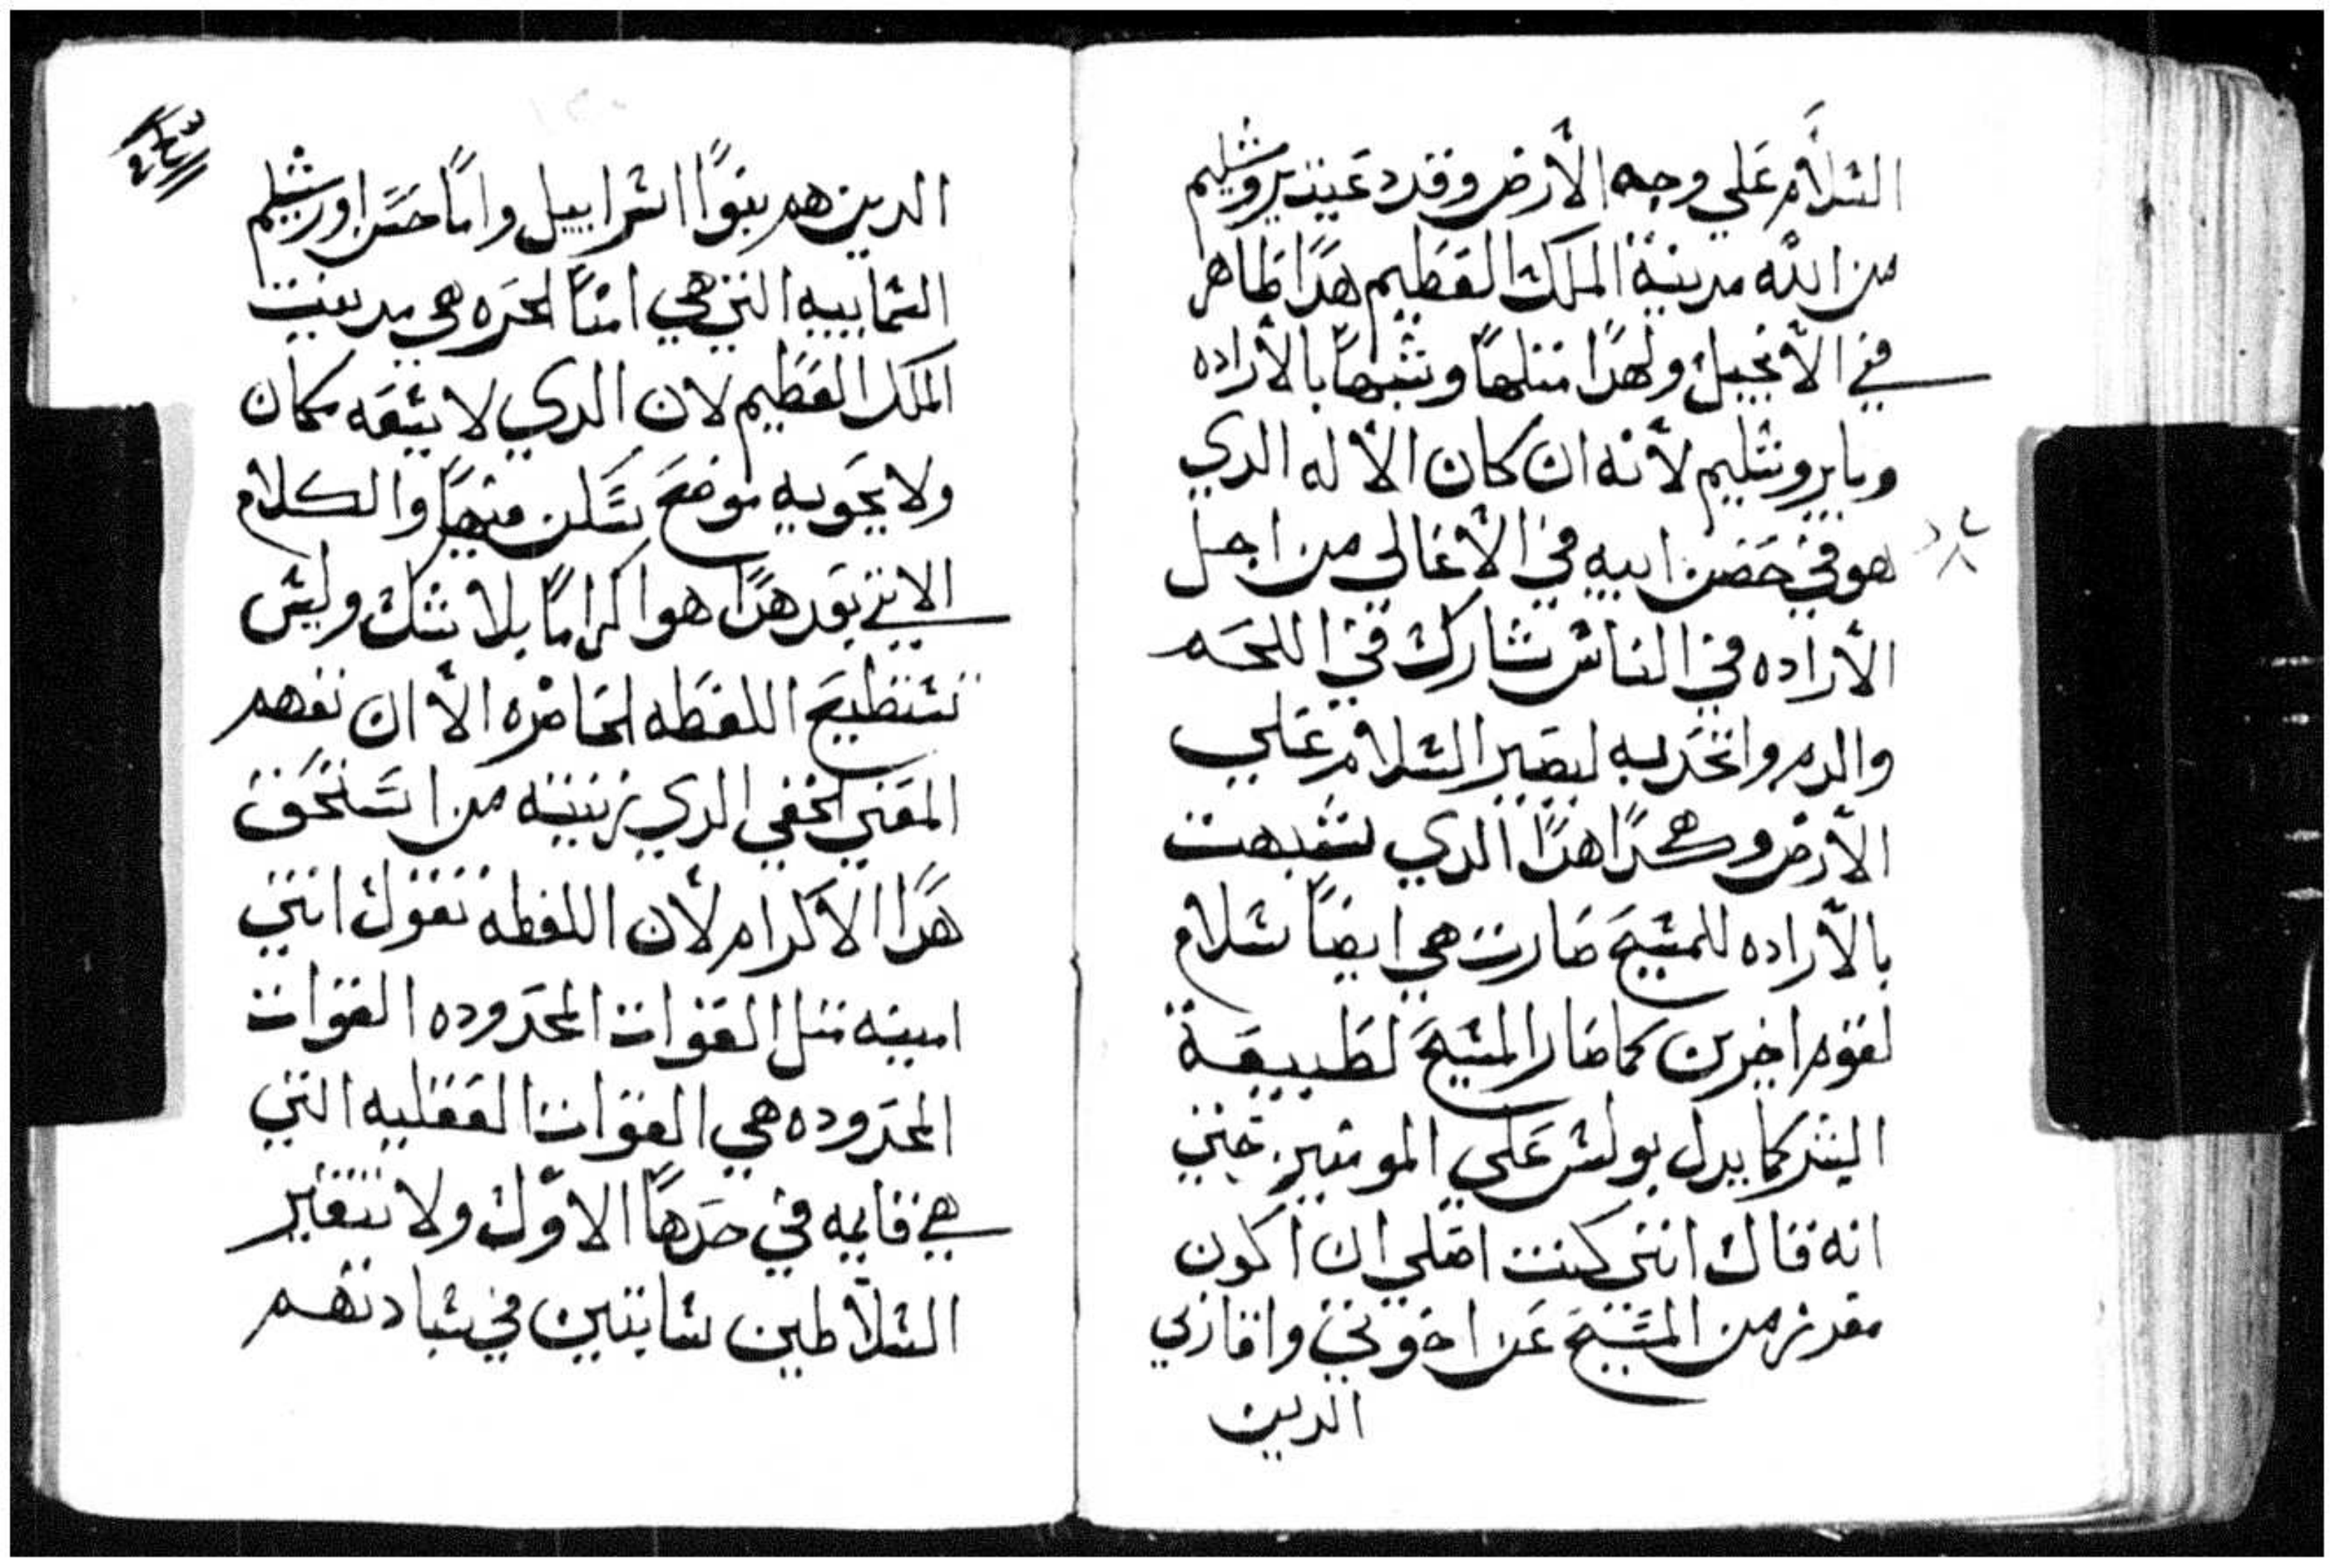 السلام علي وجه الأرض وقد دعيت يروشليم
من الله مدينة الملك العظيم هدا ظاهر
في الأنجيل ولهدا مثلها وشبهها بالأراده
وبايروشليم لأنه ان كان الأله الدي
هو في حضن ابيه في الأعالي من اجل
الأراده في الناس شارك في اللحم
والدم واتحد به ليصير السلام علي
الأرض وهكدا هدا الدي تشبهت
بالأراده للمسيح صارت هي ايضاً سلام
لقوم اخرين كما صار المسيح لطبيعة
البشر كما يدل بولس علي المومنين حتي
انه قال انني كنت اصلي ان اكون
مفرز من المسيح عن اخوتي واقاربي
الدين
الدين هم بنوا اسراييل واما حسن اورشليم
السماييه التي هي امنا الحره هي مدينت
الملك العظيم لان الدي لا يسعه مكان
ولا يحويه موضع يسكن فيها والكلام
الاتي بعد هدا هو اكراما بلا شك وليس
تستطيع اللفظه الحاضره الا ان نفهم
المعني الخفي الدي زينته من استحق
هدا الأكرام لأن اللفظه تقول انتي
امينه مثل القوات المحدوده القوات
المحدوده هي القوات العقليه التي
هي قايمه في حدها الاول ولا تتغير
السلاطين ثابتين في سيادتهم